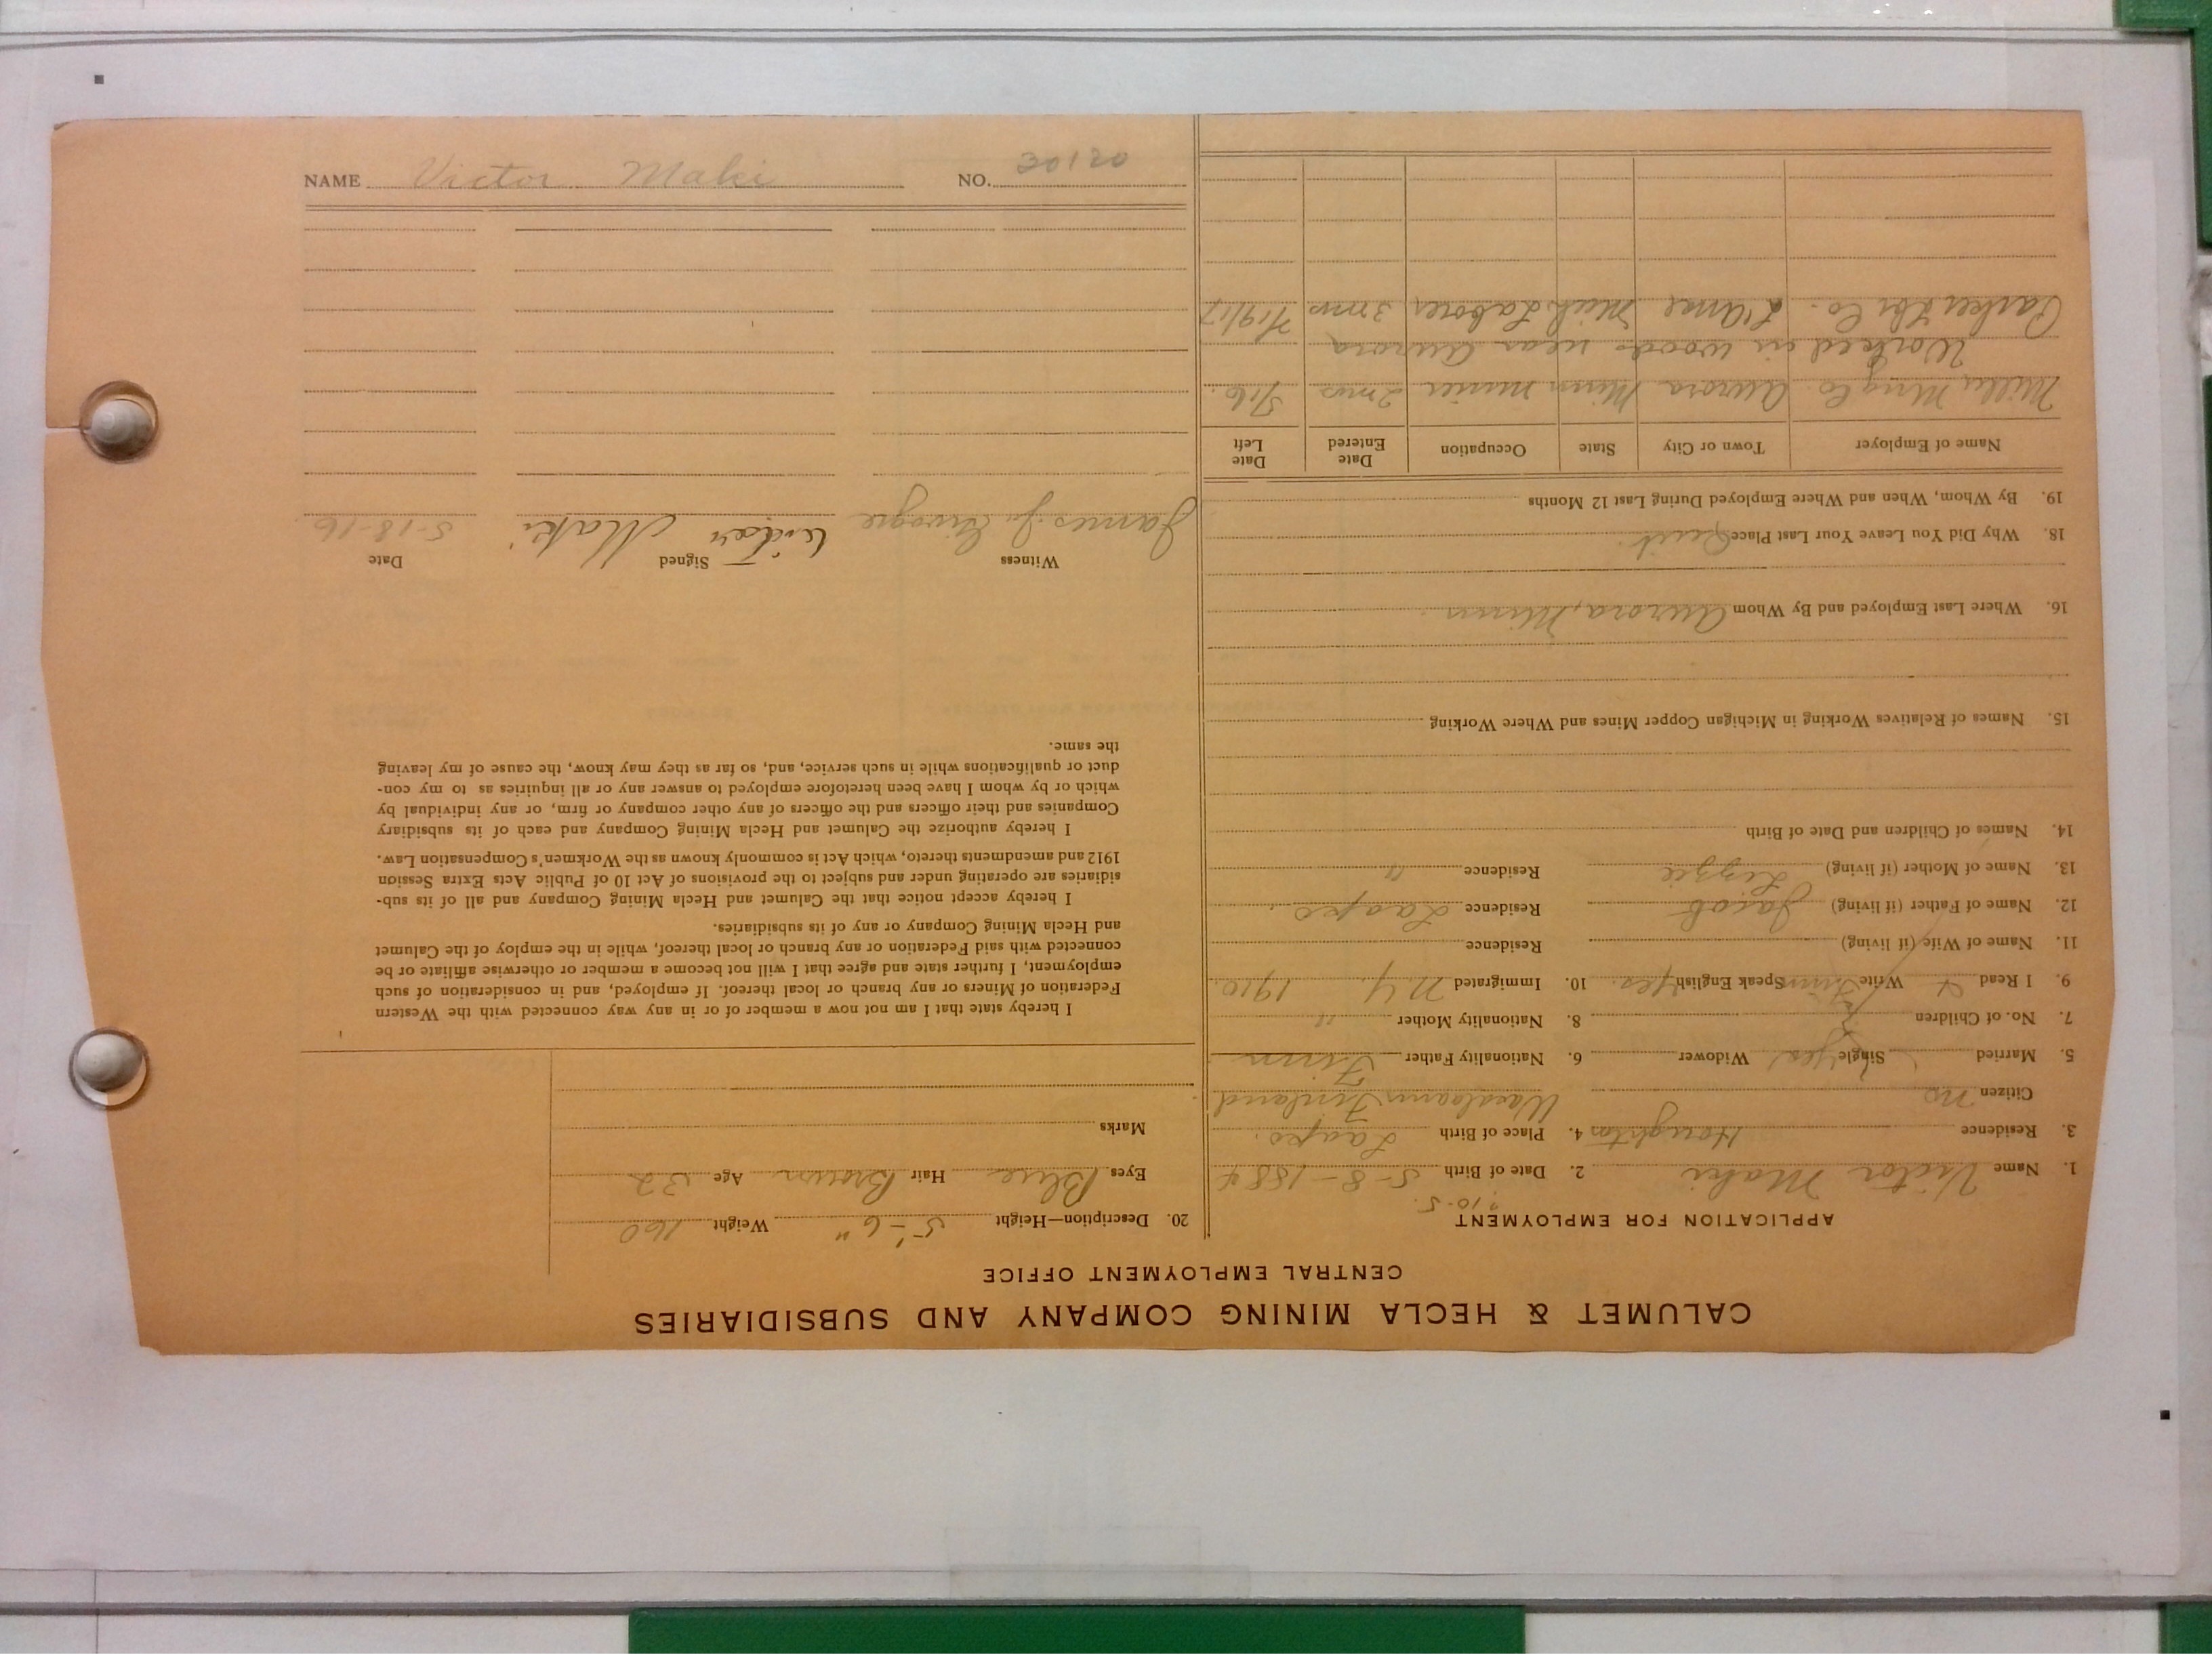 CALUMET & HECLA MINING COMPANY AND SUBSIDIARIES
CENTRAL EMPLOYMENT OFFICE
APPLICATION FOR EMPLOYMENT
1. Name Victor Maki 2. Date of Birth 5-8-1884
3. Residence Houghton 4. Place of Birth Laapo.
Citizen no Finland
5. Married Single yes Widower 6. Nationality Father Finn
7. No. of Children 8. Nationality Mother "
9. I Read Write Finn Speak English yes. 10. Immigrated N.Y. 1910.
11. Name of Wife (if living) Residence
12. Name of Father (if living) Jacob Residence Laapo
13. Name of Mother (if living) Lizzie Residence "
14. Names of Children and Date of Birth
15. Names of Relatives Working in Michigan Copper Mines and Where Working
16. Where Last Employed and By Whom Aurora, Minn
18. Why Did You Leave Your Last Place Quit.
19. By Whom, When and Where Employed During Last 12 Months
Name of Employer Town or City State Occupation Date Entered Date Left
Miller Mng Co. Aurora Minn miner 2 mos 5/16.
Worked in woods near Aurora
Parker Lbr Co. L'Anse Mich Laborer 3 mos 7/19/17
20. Description—Height 5'-6" Weight 160
Eyes Blue Hair Brown Age 32
Marks
I hereby state that I am not now a member of or in any way connected with the Western
Federation of Miners or any branch or local thereof. If employed, and in consideration of such
employment, I further state and agree that I will not become a member or otherwise affiliate or be
connected with said Federation or any branch or local thereof, while in the employ of the Calumet
and Hecla Mining Company or any of its subsidiaries.
I hereby accept notice that the Calumet and Hecla Mining Company and all of its sub-
sidiaries are operating under and subject to the provisions of Act 10 of Public Acts Extra Session
1912 and amendments thereto, which Act is commonly known as the Workmen's Compensation Law.
I hereby authorize the Calumet and Hecla Mining Company and each of its subsidiary
Companies and their officers and the officers of any other company or firm, or any individual by
which or by whom I have been heretofore employed to answer any or all inquiries as to my con-
duct or qualifications while in such service, and, so far as they may know, the cause of my leaving
the same.
Witness Signed Date
James J. Victor Maki 5-18-16
NAME Victor Maki NO. 20120